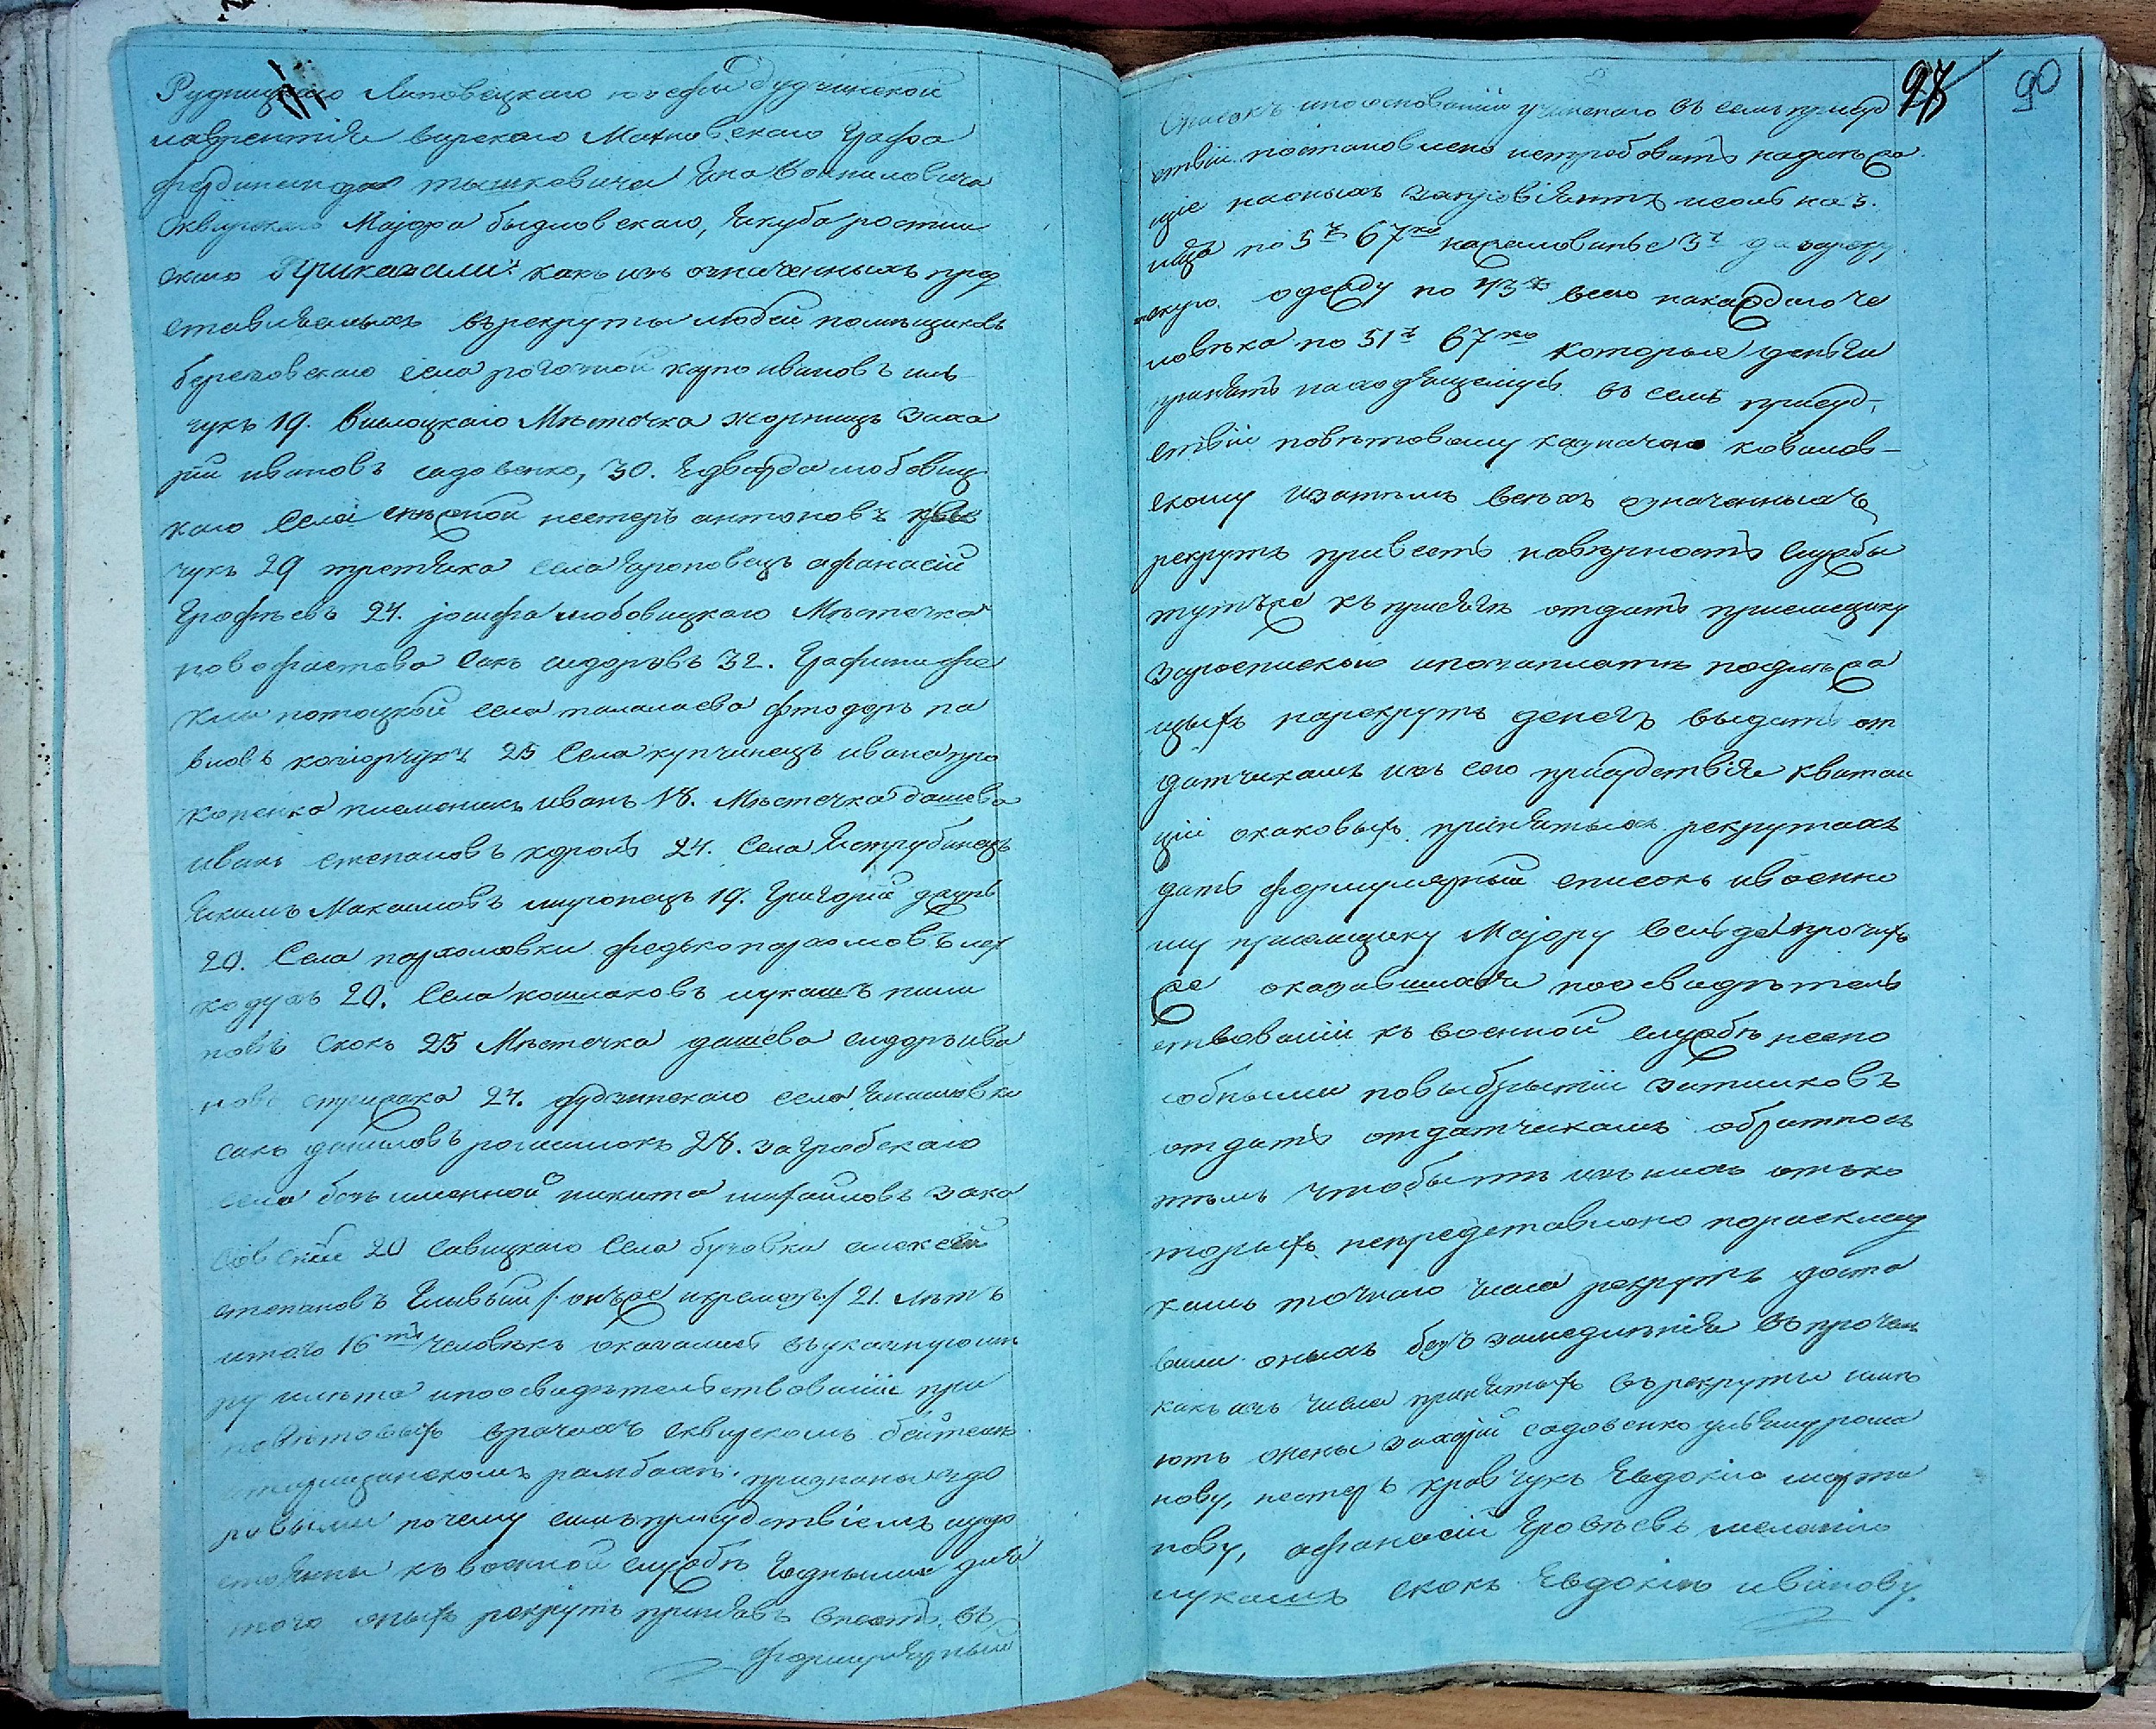 Рудницкаго Липовецкаго юзефы будзинской
лаврентія бирскаго Махновскаго Графа
фердинанда тышкевича Яна Конииловича
Сквирскаго Маіора быдловскаго, Якуба ростки
скаго Приказали: какъ изъ означенныхъ пред
ставленыхъ върекруты людей помещиковъ
березовскаго села рогозной карпо ивановъ иль
чукъ 19. билоцкаго Мѣстечка жорнищъ заха
рій ивановъ садовенко, 30. Едварда любовиц
каго Села снѣжной нестеръ антоновъ крав
чукъ 29 третяка села Яроповецъ афанасій
Ерофѣевъ 24. іозифа любовицкаго Мѣстечка
новофастова Сакъ сидоровъ 32. Графини фе
клы потоцкой села талалаева фтодоръ па
вловъ 25 Села купчинецъ ивана про
копенка племеникъ иванъ 18. Мѣстечка дашева
иванъ степановъ король 24. Села Яструбинецъ
Якимъ Максимовъ 19. Григорій
20. Села пархомовки федько пархомовъ
20. Села кошлаковъ лукашъ пили
повъ Скокъ 25 Мѣстечка дашева сидоръ ива
новъ 24. будзинскаго села Янишовки
сакъ даниловъ 28. загробскаго
села безъименной никита михайловъ зака
20 Савицкаго Села бузовки алексѣй
степановъ /: онъже :/ 21. лѣтъ
итого 16ть человѣкъ оказались въуказную мѣ
ру и лѣта и поосвидѣтельствованіи при
повѣтовыхъ врачахъ сквирскомъ
таращанскомъ признаны здо
ровыми почему симъ присудствіемъ и удо
стоены къ военной службѣ годными для
того оныхъ рекрутъ принявъ внесть въ
формулярный
97 90
Списокъ ипооснованіи учиненаго въ семъ присуд
ствіи постановлено истребовать надлежа
щіе наоныхъ запровіянтъ исоль на 3.
мца по 5р 67ко нажалованье 3р зарекру
тскую одежду по 43р всего накаждаго че
ловѣка по 51р 67ко которыя деньги
принять находящемуся въ семъ присуд-
ствіи повѣтовому казначею ковалев-
скому изатемъ всехъ означенныхъ
рекрутъ привесть навѣрность службы
тутъже къ присягѣ отдать приемщику
зароспиською ипозаплатѣ надлежа
щыхъ нарекрутъ денегъ выдать от
датчикамъ изъ сего присудствія квитан
ціи окаковыхъ принятыхъ рекрутахъ
дать формулярный списокъ ивоенно
му приемщику Маіору прочихъ
же оказавшихся поосвидѣтель
ствованіи къ военной службѣ неспо
собными повыбрытіи затилковъ
отдать отдатчикамъ обратносъ
темъ чтобы тѣ изъ нихъ отъко
торыхъ непредставлено пораскла
камъ точнаго числа рекрутъ доста
вили оныхъ безъ замедленія въпрочемъ
какъ изъ числа принятыхъ върекруты имѣ
ютъ жены захарій садовенко ульяну рома
нову, нестеръ кравчукъ Евдокію марти
нову, афанасій Ерофѣевъ меланію
лукашъ скокъ Евдокію иванову.